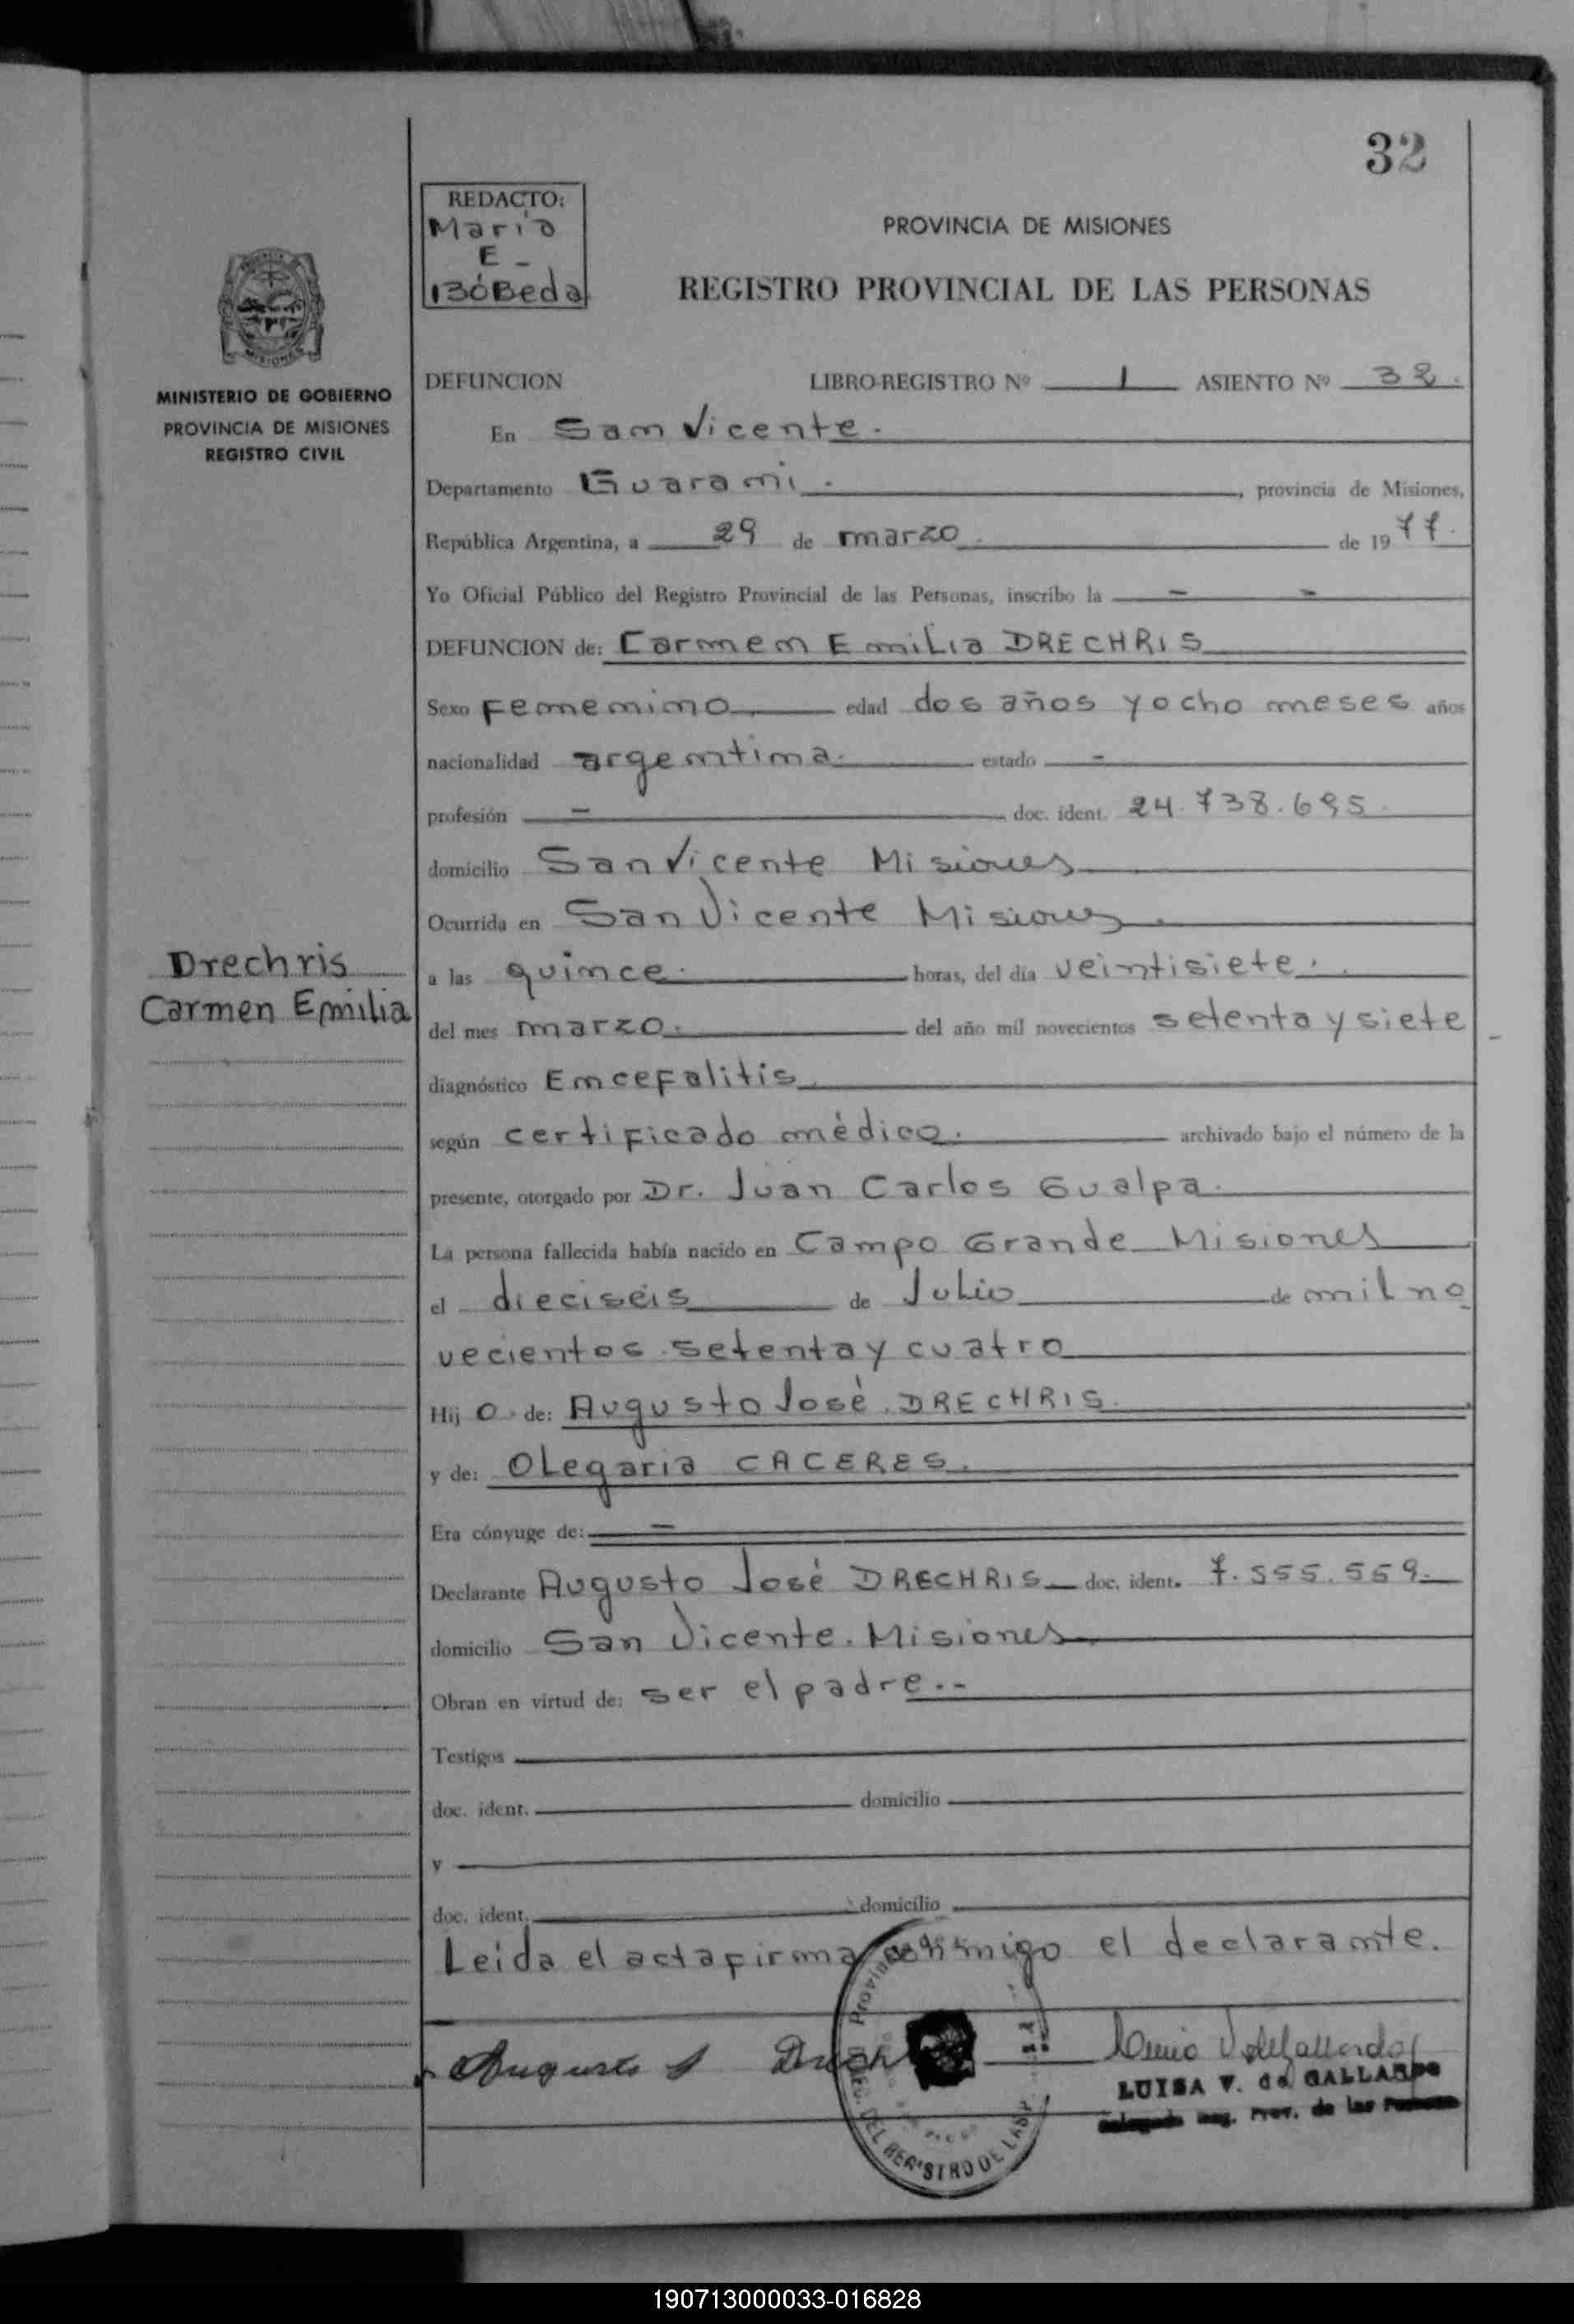 32
REDACTO:
Maria
E -
BóBeda
PROVINCIA DE MISIONES
REGISTRO PROVINCIAL DE LAS PERSONAS
MISIONES
MINISTERIO DE GOBIERNO
PROVINCIA DE MISIONES
REGISTRO CIVIL
DEFUNCION LIBRO-REGISTRO Nº 1 ASIENTO Nº 32.
En San Vicente.
Departamento Guarani., provincia de Misiones,
República Argentina, a 29 de marzo. de 19 77.
Yo Oficial Público del Registro Provincial de las Personas, inscribo la - -
DEFUNCION de: Carmen Emilia DRECHRIS
Sexo Femenino edad dos años y ocho meses años
nacionalidad argentina. estado -
profesión - doc. ident. 24.738.695.
domicilio San Vicente Misiones
Ocurrida en San Vicente Misiones.
Drechris
Carmen Emilia
a las quince. horas, del día veintisiete.
del mes marzo. del año mil novecientos setenta y siete
diagnóstico Encefalitis
según certificado médico. archivado bajo el número de la
presente, otorgado por Dr. Juan Carlos Gualpa.
La persona fallecida había nacido en Campo Grande Misiones
el dieciséis de Julio de mil no
vecientos setenta y cuatro
Hij o. de: Augusto José DRECHRIS.
y de: Olegaria CACERES.
Era cónyuge de: -
Declarante Augusto José DRECHRIS doc. ident. 7.555.569.
domicilio San Vicente. Misiones
Obran en virtud de: ser el padre..-
Testigos
doc. ident. domicilio
y
doc. ident. domicilio
Leida el acta firma conmigo el declarante.
Augusto J Drech
LUISA V. de GALLARDO
Delegada Reg. Prov. de las Personas
DEL REGISTRO DE LAS P
190713000033-016828